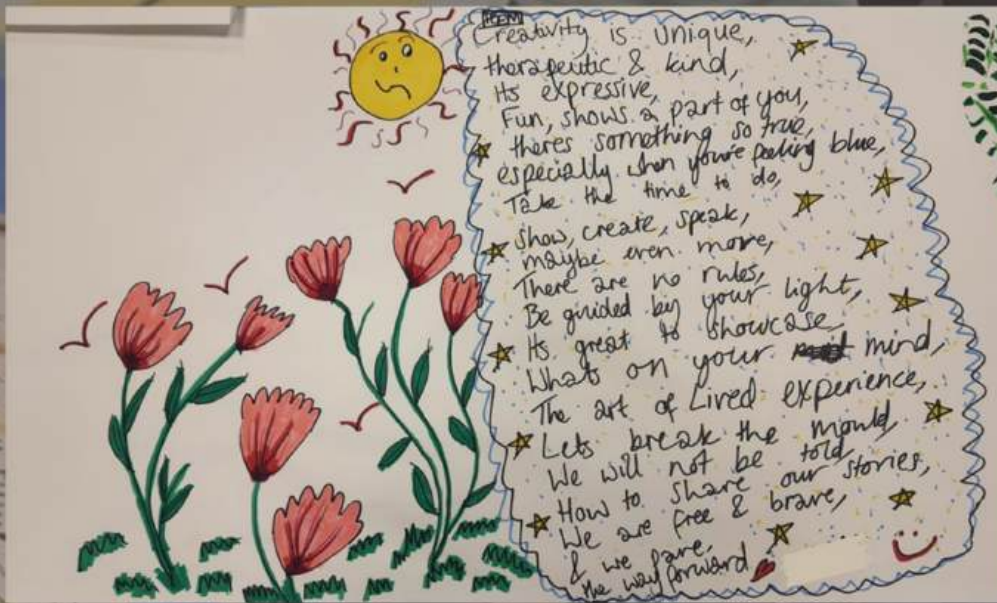 POEM
Creativity is unique,
therapeutic & kind,
Its expressive,
Fun, shows a part of you,
theres something so true,
especially when you're feeling blue,
Take the time to do,
Show, create, speak,
maybe even more,
There are no rules,
Be guided by your light,
Its great to showcase,
Whats on your mind,
The art of Lived experience,
Lets break the mould,
We will not be told,
How to share our stories,
We are free & brave,
& we pave,
the way forward